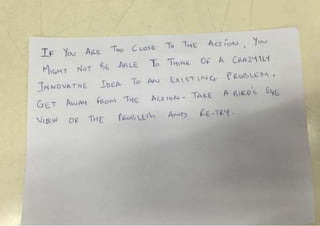 IF YOU ARE TOO CLOSE TO THE ACTION, YOU
MIGHT NOT BE ABLE TO THINK OF A CRAZYILY
INNOVATIVE IDEA TO AN EXISTING PROBLEM.
GET AWAY FROM THE ACTION. TAKE A BIRD'S EYE
VIEW OF THE PROBLEM AND RE-TRY.